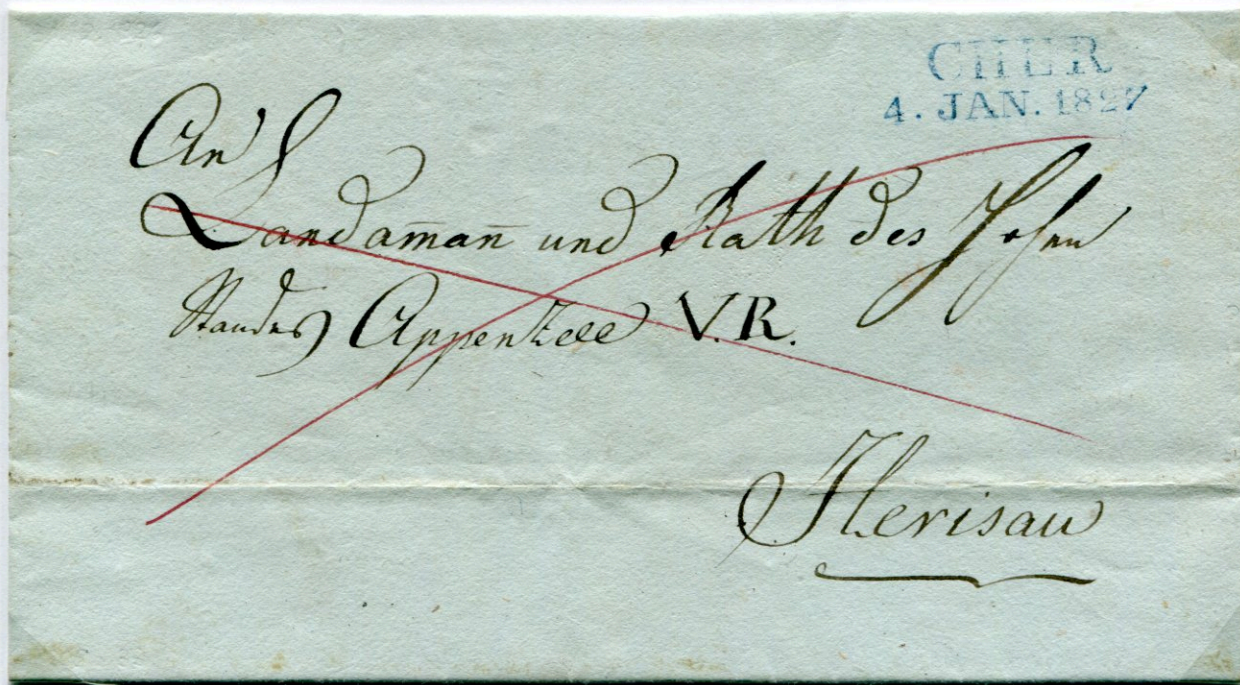 CHUR
4. JAN. 1827
An
Landam̄an̄ und Rath des Hohen
Standes Appenzell V.R.
Herisau